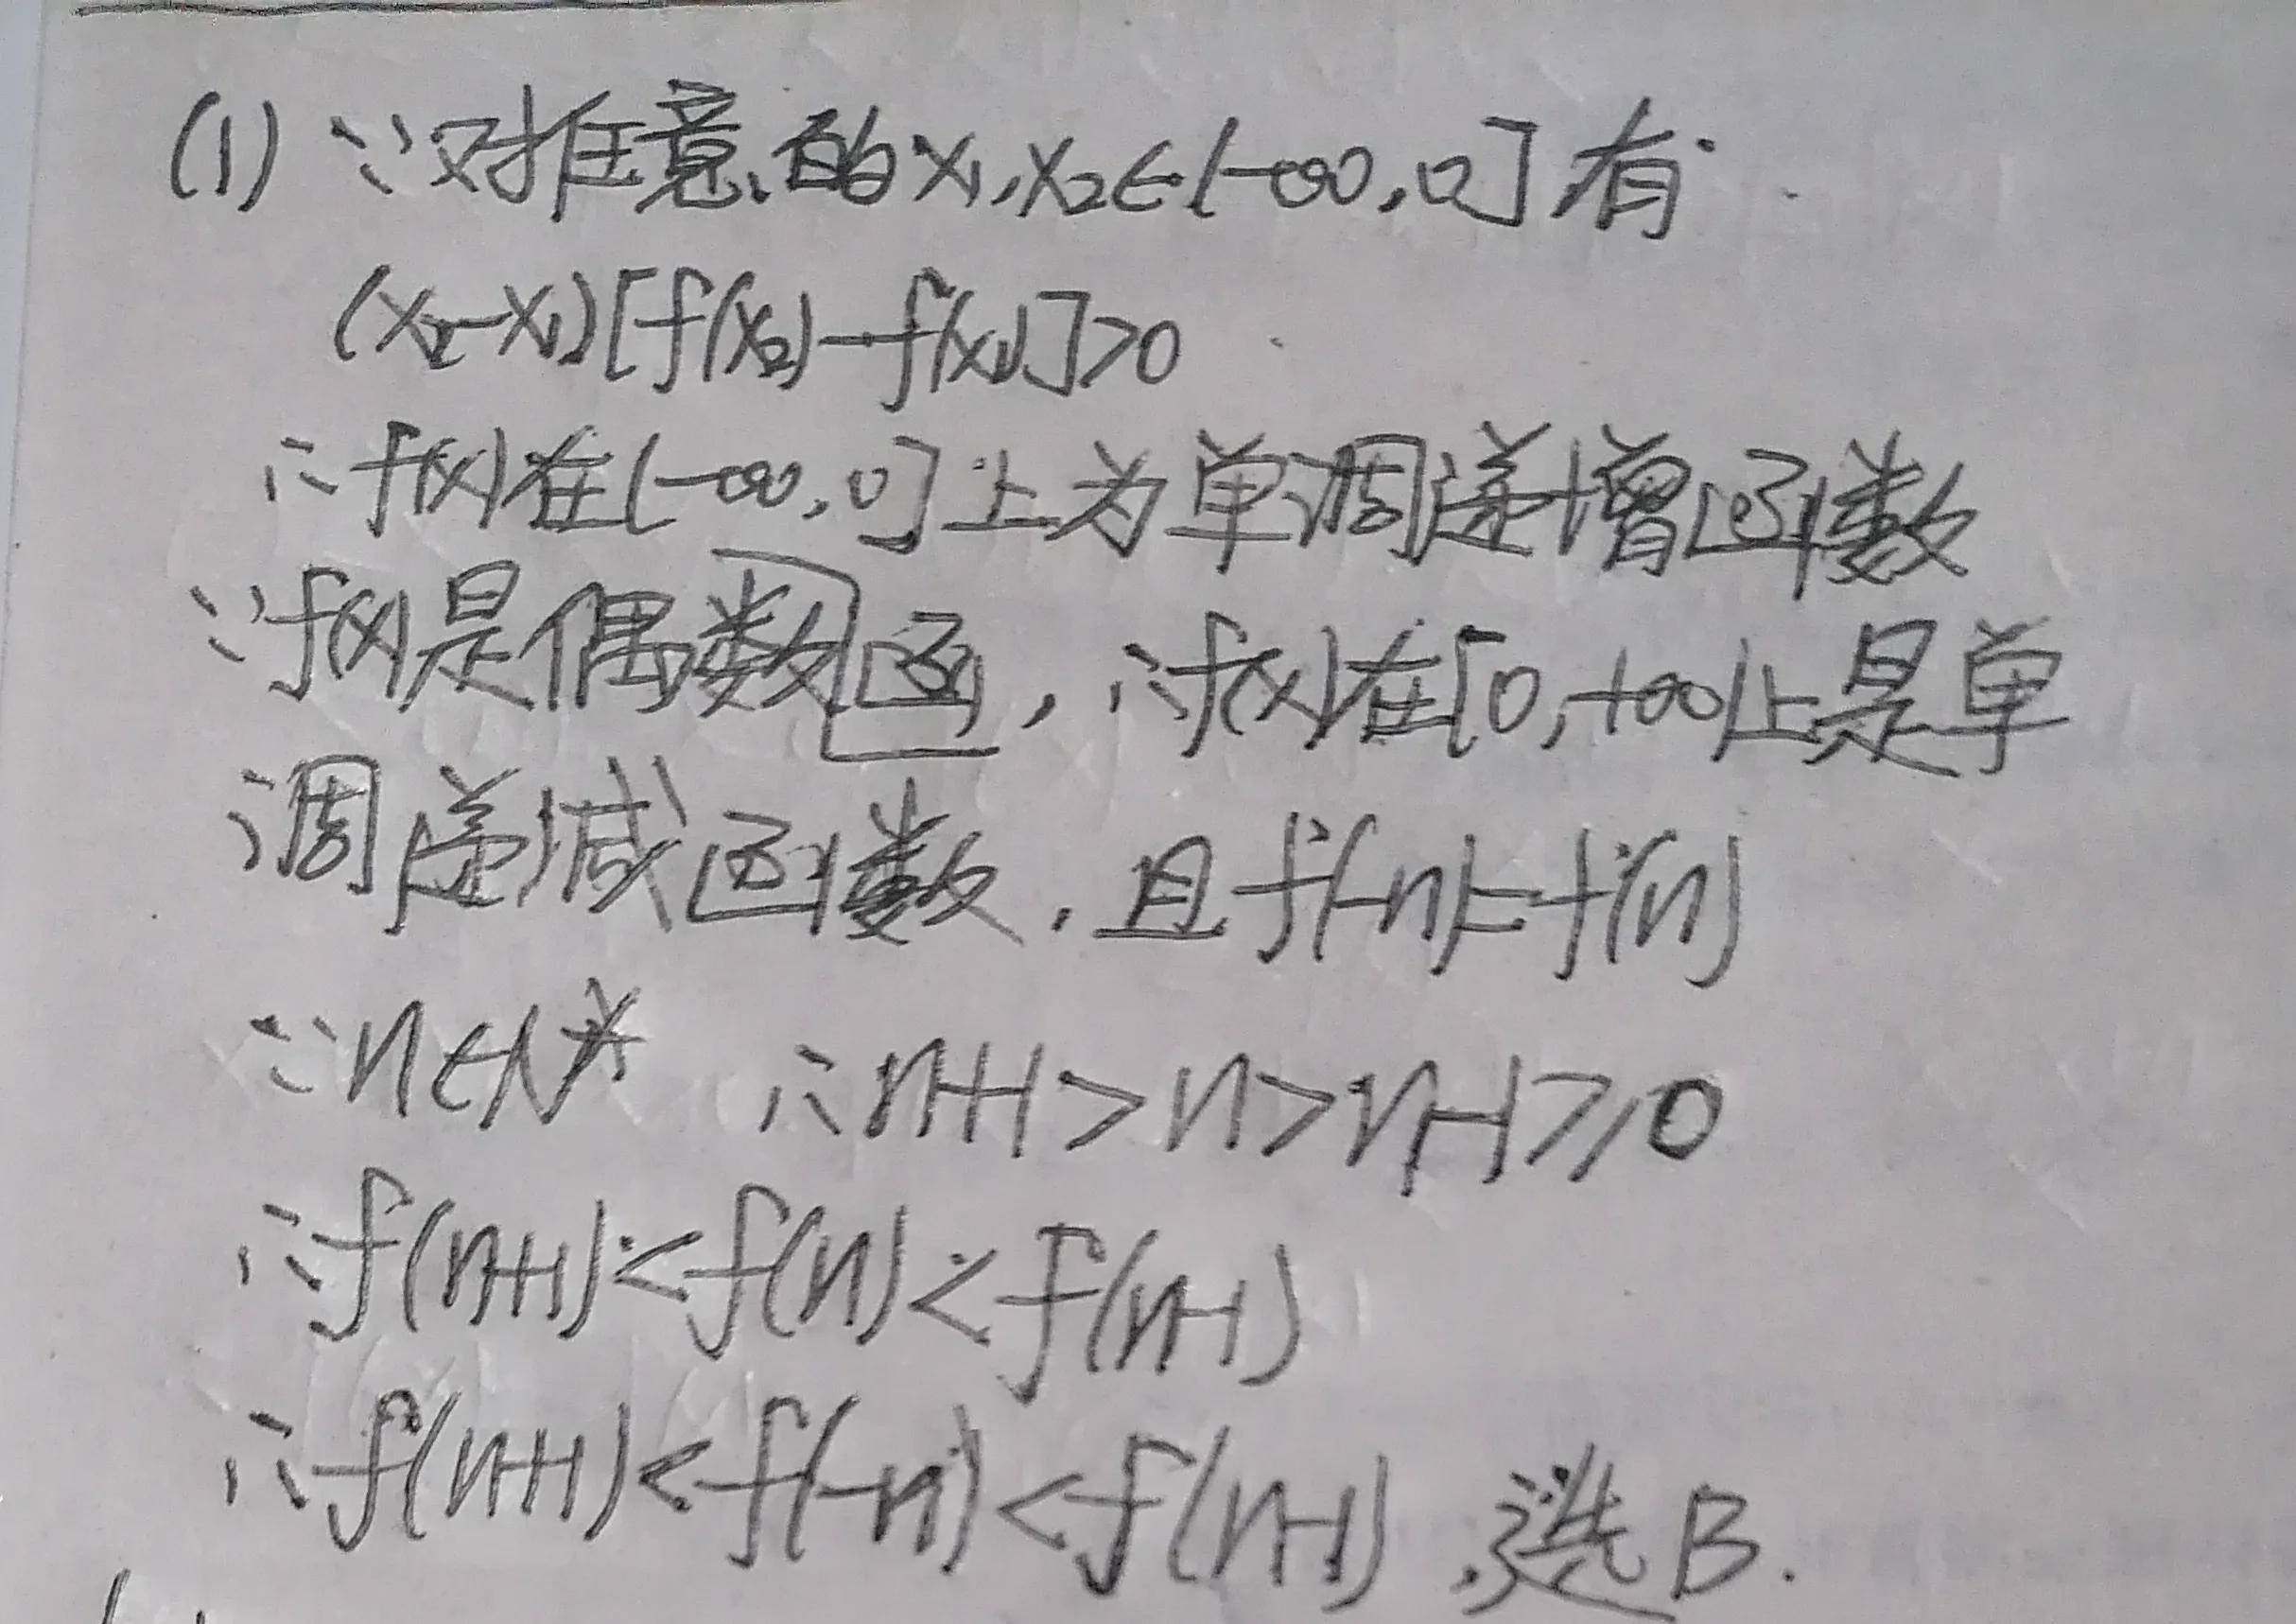 (1) ∵对任意的x₁,x₂∈(-∞,0]有
(x₂-x₁)[f(x₂)-f(x₁)]>0
∴f(x)在(-∞,0]上为单调递增函数
∵f(x)是偶数函,∴f(x)在[0,+∞)上是单
调递减函数,且f(-n)=f(n)
∵n∈N* ∴n+1>n>n-1≥0
∴f(n+1)<f(n)<f(n-1)
∴f(n+1)<f(-n)<f(n-1),选B.